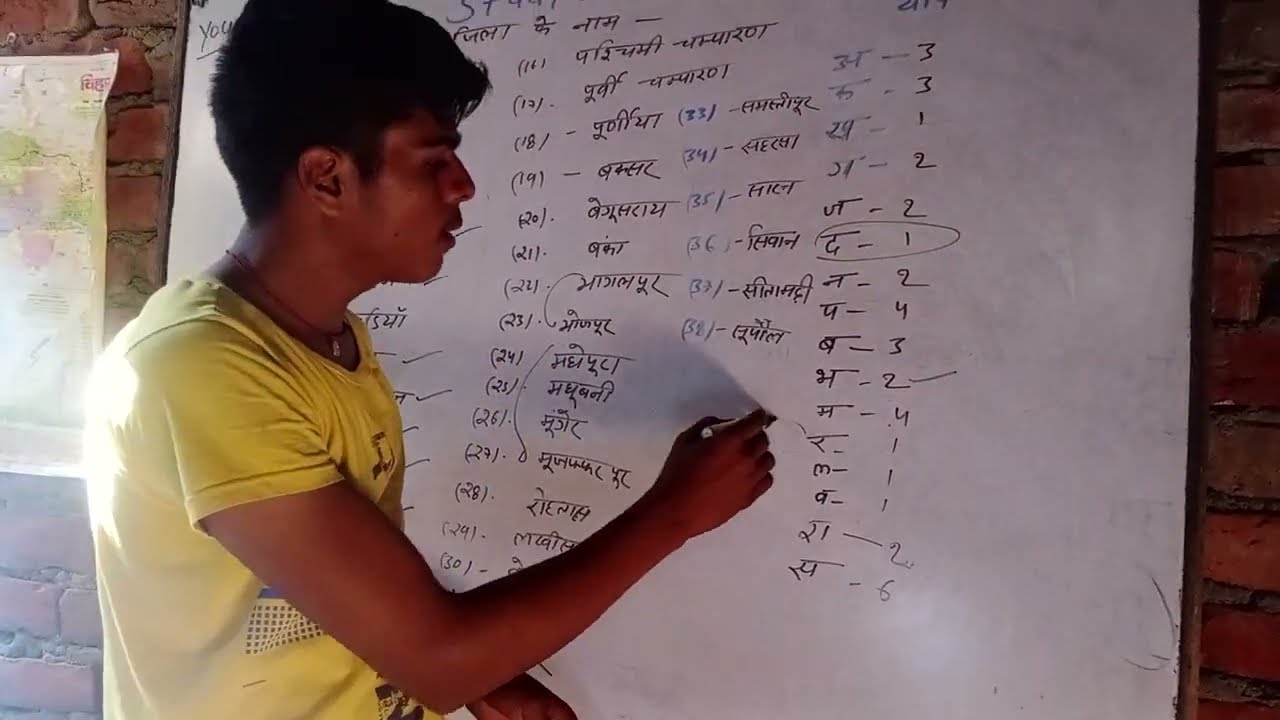 YOU
बिहार
जिला के नाम —
(16) पश्चिमी चम्पारण
(17). पूर्वी चम्पारण
(18) - पूर्णीया
(19) - बक्सर
(20). बेगूसराय
(21). बंका
(22). भागलपूर
(23). भोजपूर
(24) मधेपूरा
(25). मधूबनी
(26). मूंगेर
(27). मूजफ्फरपूर
(28). रोहतास
(29).
(30) -
(33) - समस्तीपूर
(34) - सहरसा
(35) - सारन
(36) - सिवान
(37) - सीतामढ़ी
(38) - सूपौल
अ - 3
क - 3
ख - 1
ग - 2
ज - 2
द - 1
न - 2
प - 4
ब - 3
भ - 2
म - 4
र - 1
ल - 1
व - 1
श - 2
स - 6